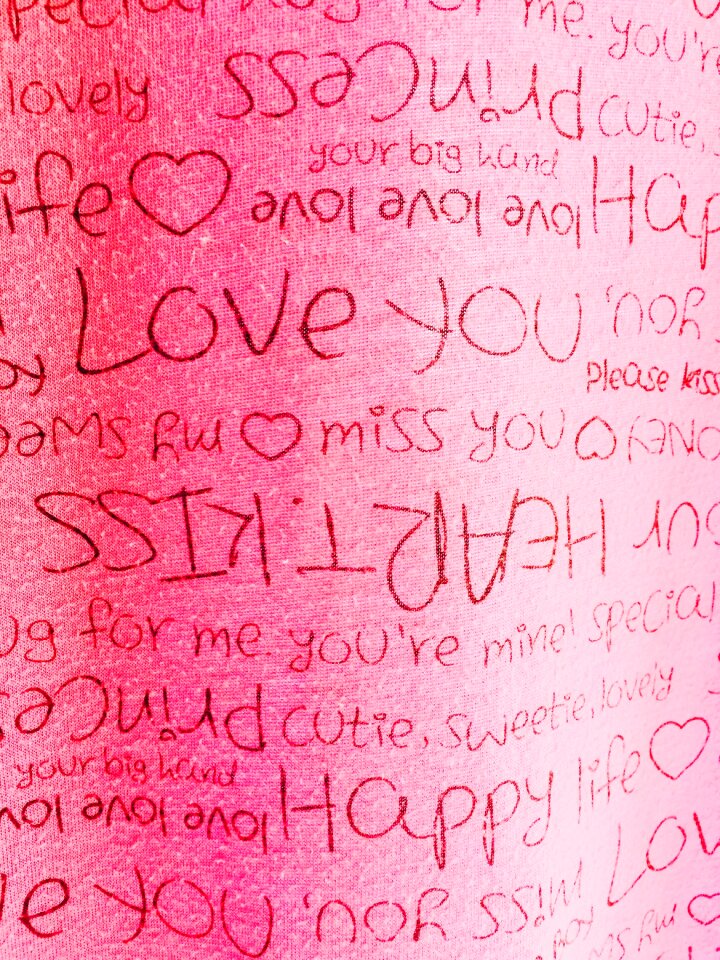 special hug for me. you're
lovely princess cutie,
your big hand
ife ♡ love love love Hap
Love you you,
Please kiss
my swee ♡ miss you ♡
HEART KISS
ug for me. you're mine! special
princess cutie, sweetie, lovely
your big hand
love love lov Happy life ♡
ve you miss you, Lov